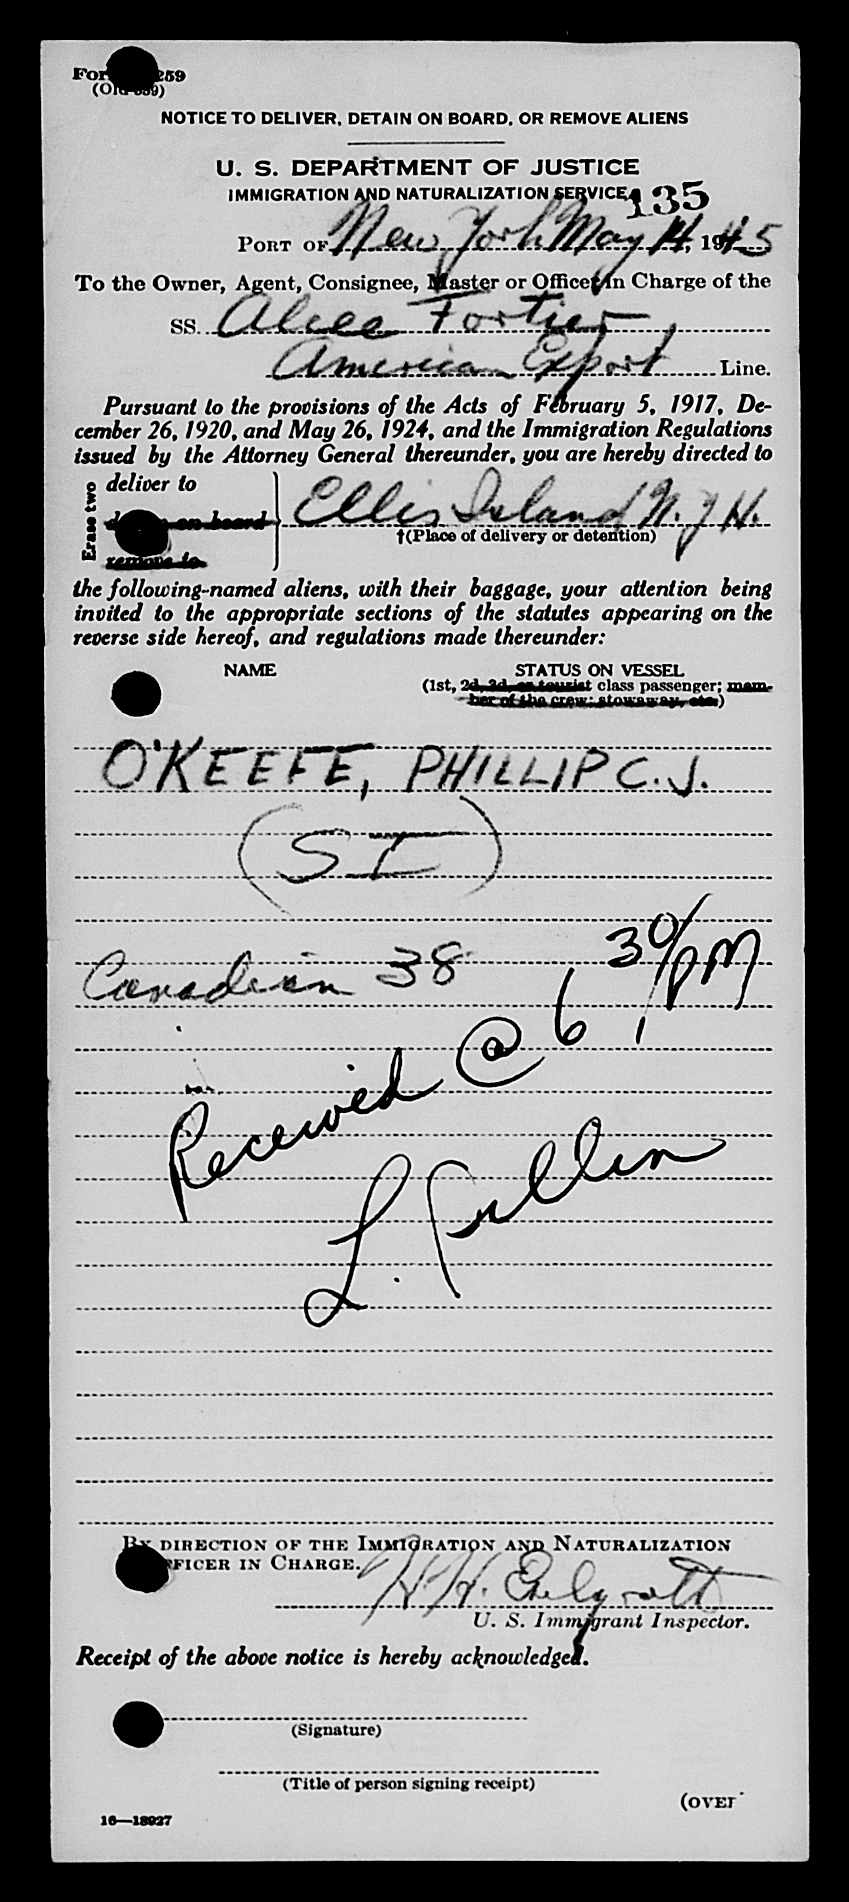 For 259
(Old 689)
NOTICE TO DELIVER, DETAIN ON BOARD, OR REMOVE ALIENS
U. S. DEPARTMENT OF JUSTICE
IMMIGRATION AND NATURALIZATION SERVICE
135
PORT OF New York May 14, 1945
To the Owner, Agent, Consignee, Master or Officer in Charge of the
SS. Alcee Fortier
American Export Line.
Pursuant to the provisions of the Acts of February 5, 1917, De-
cember 26, 1920, and May 26, 1924, and the Immigration Regulations
issued by the Attorney General thereunder, you are hereby directed to
Erase two
deliver to
on board
remove to
Ellis Island N. Y. H.
†(Place of delivery or detention)
the following-named aliens, with their baggage, your attention being
invited to the appropriate sections of the statutes appearing on the
reverse side hereof, and regulations made thereunder:
NAME STATUS ON VESSEL
(1st, 2d, 3d, or tourist class passenger; mem-
ber of the crew; stowaway, etc.)
O'KEEFE, PHILLIP C. J.
(SI)
Canadian 38
Received @ 6:30 PM
L.
BY DIRECTION OF THE IMMIGRATION AND NATURALIZATION
OFFICER IN CHARGE.
U. S. Immigrant Inspector.
Receipt of the above notice is hereby acknowledged.
(Signature)
(Title of person signing receipt)
(OVER
16—18927